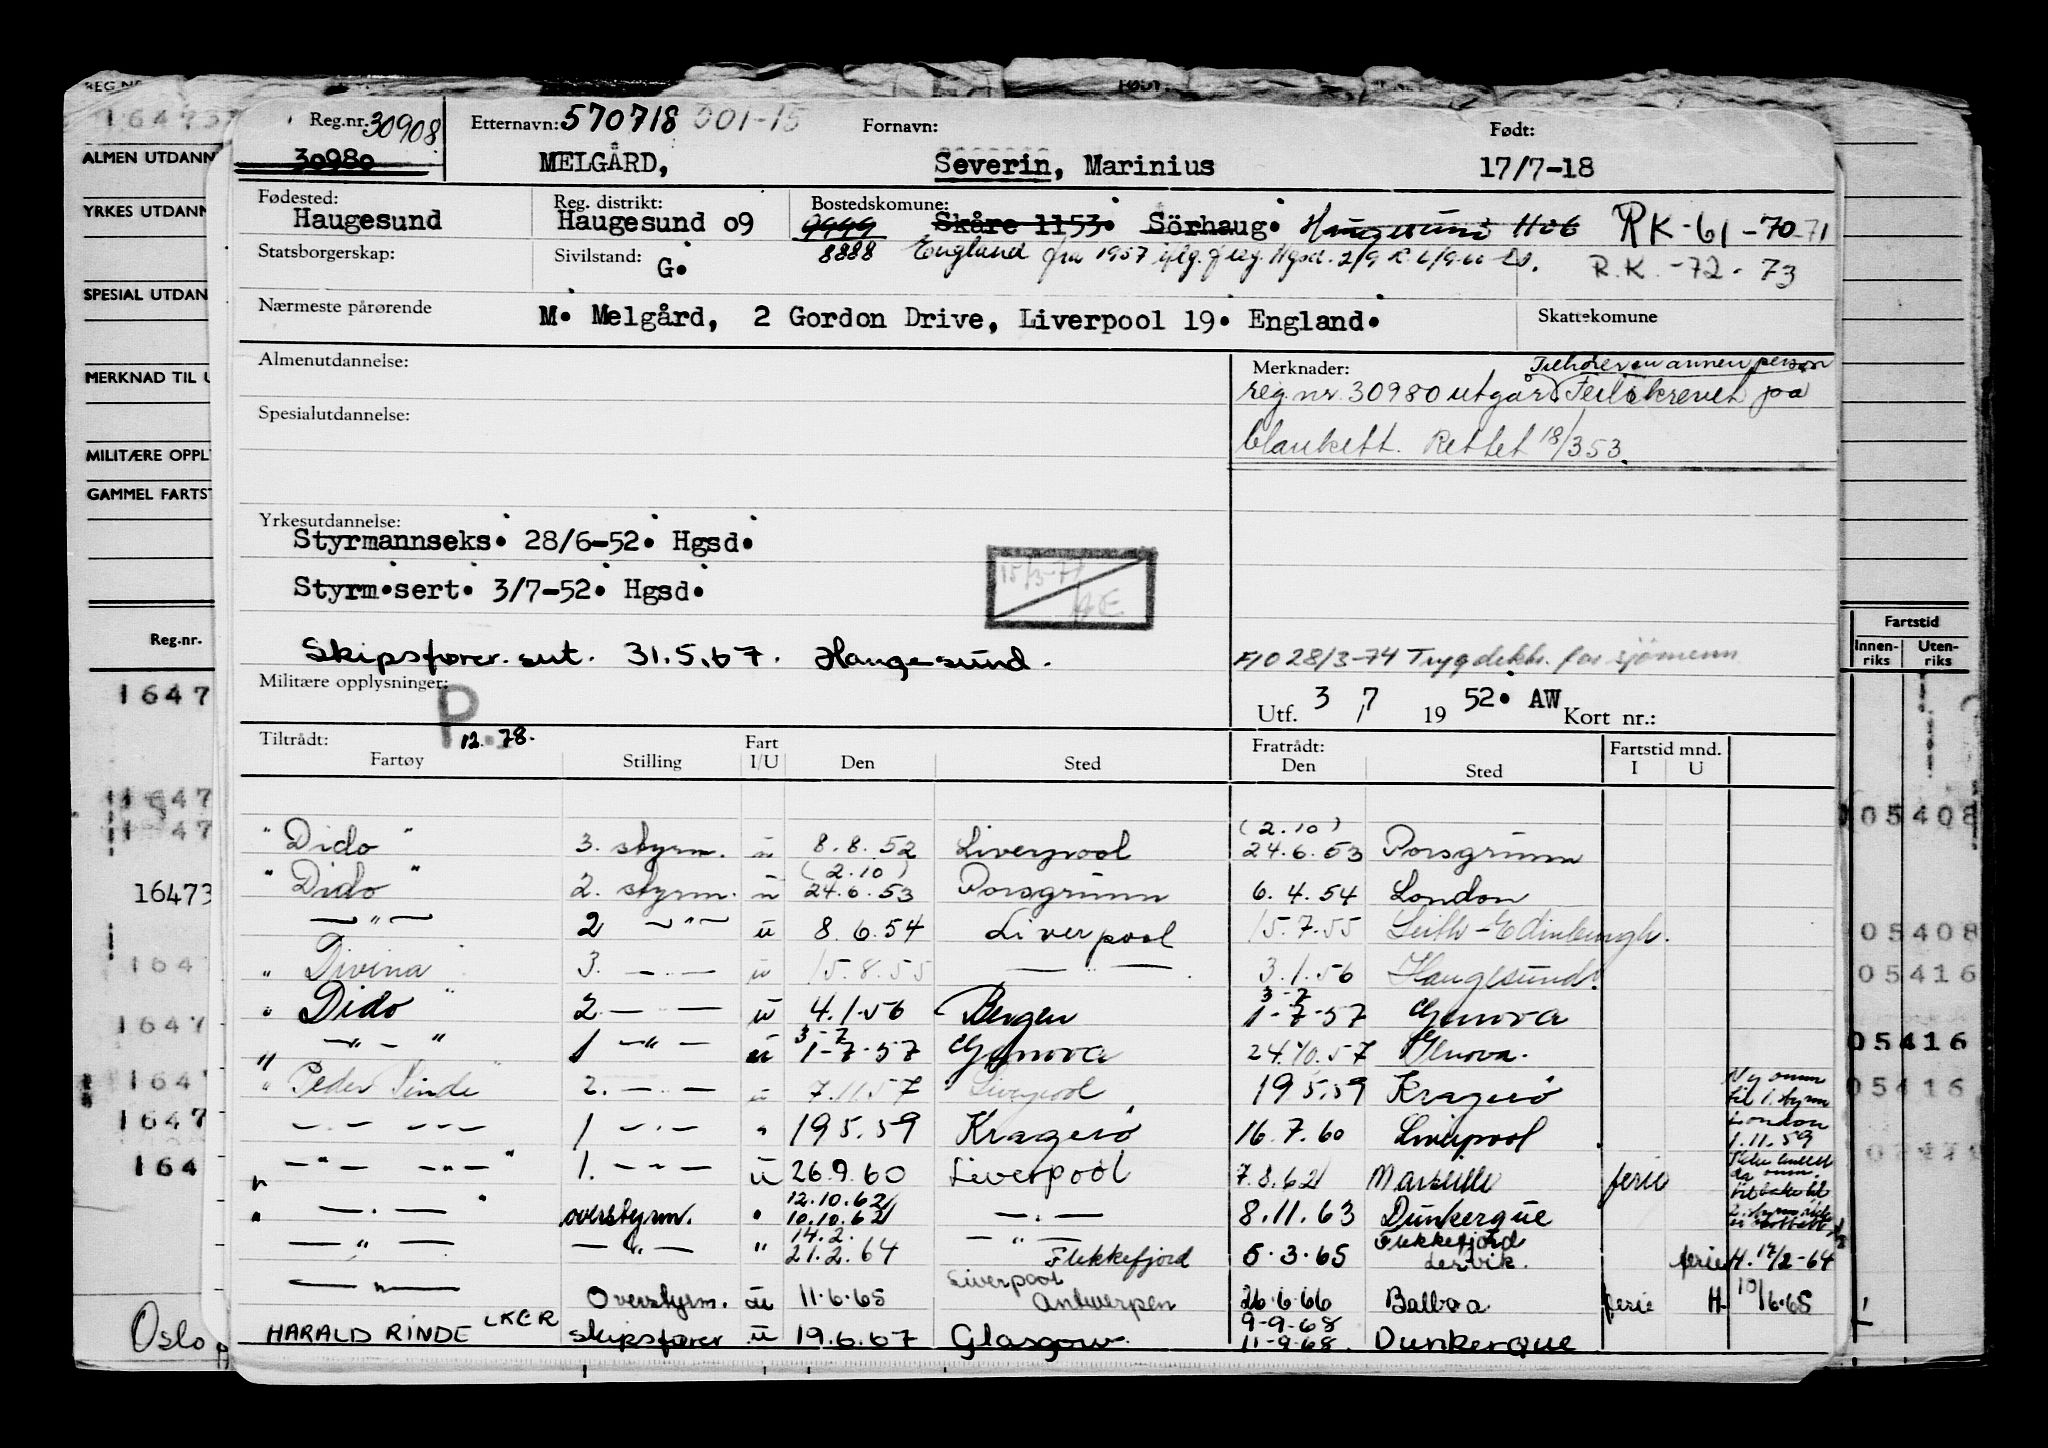 Reg.nr. 30908 Etternavn: 570718 001-15 Fornavn: Født:
30980 MELGÅRD, Severin, Marinius 17/7-18
Fødested: Reg. distrikt: Bostedskomune:
Haugesund Haugesund o9 9999 Skåre 1153. Sörhaug. Haugesund RK-61-70-71
Statsborgerskap: Sivilstand: G. 8888 England fra 1957 R.K.-72-73
Nærmeste pårørende M. Melgård, 2 Gordon Drive, Liverpool 19. England. Skattekomune
Almenutdannelse: Merknader: Tilhører en annen person
reg.nr. 30980 utgår Feilskrevet på
Spesialutdannelse: blankett. Rettet 18/353.
Yrkesutdannelse:
Styrmannseks. 28/6-52. Hgsd.
Styrm.sert. 3/7-52. Hgsd.
15/3-71
Skipsfører. sert. 31.5.67. Haugesund.
F/O 28/3-74 Trygdekt. for sjömenn
Militære opplysninger: P 12.78.
Utf. 3/7 19 52. AW Kort nr.:
Tiltrådt: Fart Fratrådt: Fartstid mnd.
Fartøy Stilling I/U Den Sted Den Sted I U
" Dido " 3. styrm. u 8.8.52 Liverpool (2.10) 24.6.53 Porsgrunn
" Dido " 2. styrm. u (2.10) 24.6.53 Porsgrunn 6.4.54 London
— " — 2 — " — u 8.6.54 Liverpool 15.7.55 Leith-Edinburgh.
" Divina " 3. — " — u 15.8.55 — " — 3.1.56 Haugesund.
" Dido " 2. — " — u 4.1.56 Bergen 3-7 1-7-57 Genova
— " — " 1 — " — u 3-7 1-7-57 Genova 24.10.57 Genova.
" Peder Rinde " 2. — " — u 7.11.57 Liverpool 19.5.59 Kragerö
— " — 1 — " — " 19.5.59 Kragerö 16.7.60 Liverpool
Ny omm til 1. styrm London 1.11.59
— " — " 1. — " — u 26.9.60 Liverpool 7.8.62 Marseille ferie
— " — " overstyrm. " 12.10.62 10.10.62 — " — 8.11.63 Dunkerque
— " — — " — " 14.2. 21.2.64 — " — Flekkefjord 5.3.65 Flekkefjord Lervik. ferie H. 17/2-64
— " — Overstyrm. u 11.6.65 Liverpool Antwerpen 26.6.66 Balboa ferie H 10/6.65
HARALD RINDE LKER skipsfører u 19.6.67 Glasgow. 9-9-68 11-9-68. Dunkerque
REG.NR.
16473
ALMEN UTDANN
YRKES UTDANN
SPESIAL UTDAN
MERKNAD TIL U
MILITÆRE OPPL
GAMMEL FARTST
Reg.nr.
1647
1647
1647
16473
1647
1647
1647
1647
164
Oslo
Fartstid
Innen-riks Uten-riks
05408
05408
05416
05416
05416